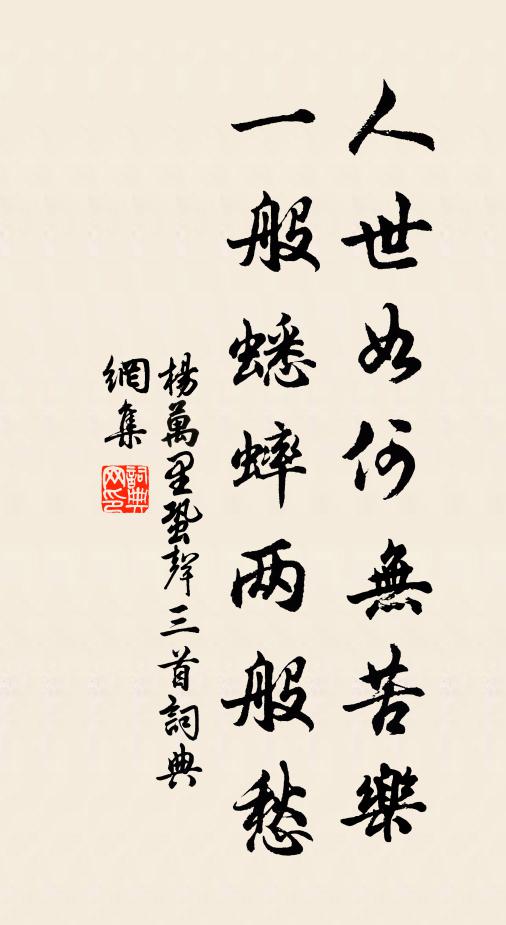 人世如何無苦樂
一般蟋蟀两般愁
楊萬里蛩聲三首詞典
網集
詞典网印